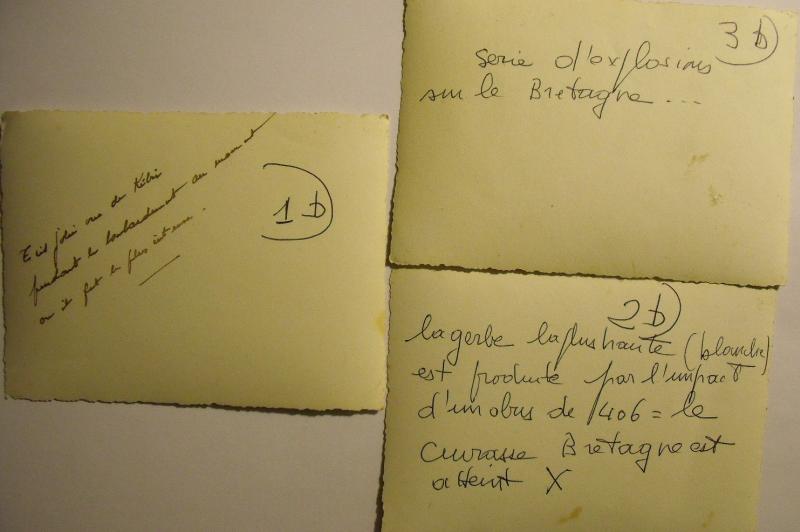 1 b
Très jolie vue de Kébir
pendant le bombardement au moment
où il fut le plus intense.
3 b
serie d'explosions
sur le Bretagne ...
2 b
la gerbe la plus haute (blanche)
est produite par l'impact
d'un obus de 406 = le
cuirasse Bretagne est
atteint X